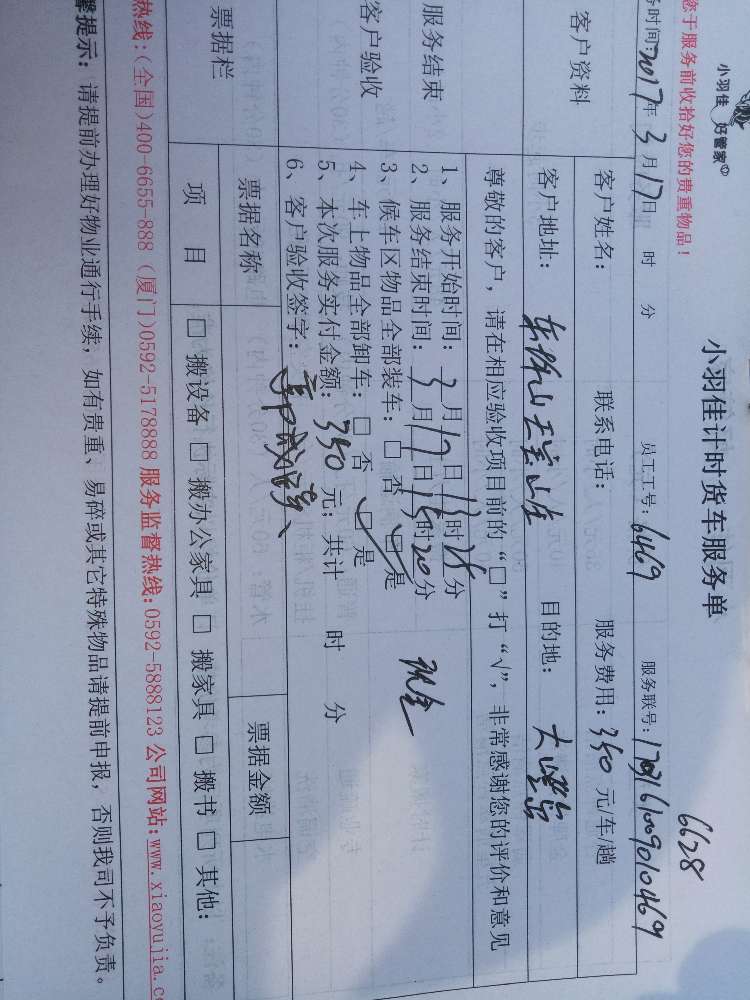 小羽佳 好管家
您于服务前收拾好您的贵重物品！
小羽佳计时货车服务单
6628
务时间:2017年3月17日 时 分 员工工号:6469 服务联号:
客户资料 客户姓名: 联系电话: 服务费用:350元/车/趟
客户地址: 目的地:
尊敬的客户，请在相应验收项目前的“□”打“√”，非常感谢您的评价和意见
服务结束 1、服务开始时间:3月17日13时25分
2、服务结束时间:3月17日15时20分
客户验收 3、候车区物品全部装车:□否 □是
4、车上物品全部卸车:□否 □是
5、本次服务实付金额:350元;共计 时 分
6、客户验收签字:
现金
票据栏 票据名称 票据金额
项目 □搬设备 □搬办公家具 □搬家具 □搬书 □其他:
热线:(全国)400-6655-888 (厦门)0592-5178888 服务监督热线:0592-5888123 公司网站:www.xiaoyujia.c
馨提示: 请提前办理好物业通行手续，如有贵重、易碎或其它特殊物品请提前申报，否则我司不予负责。